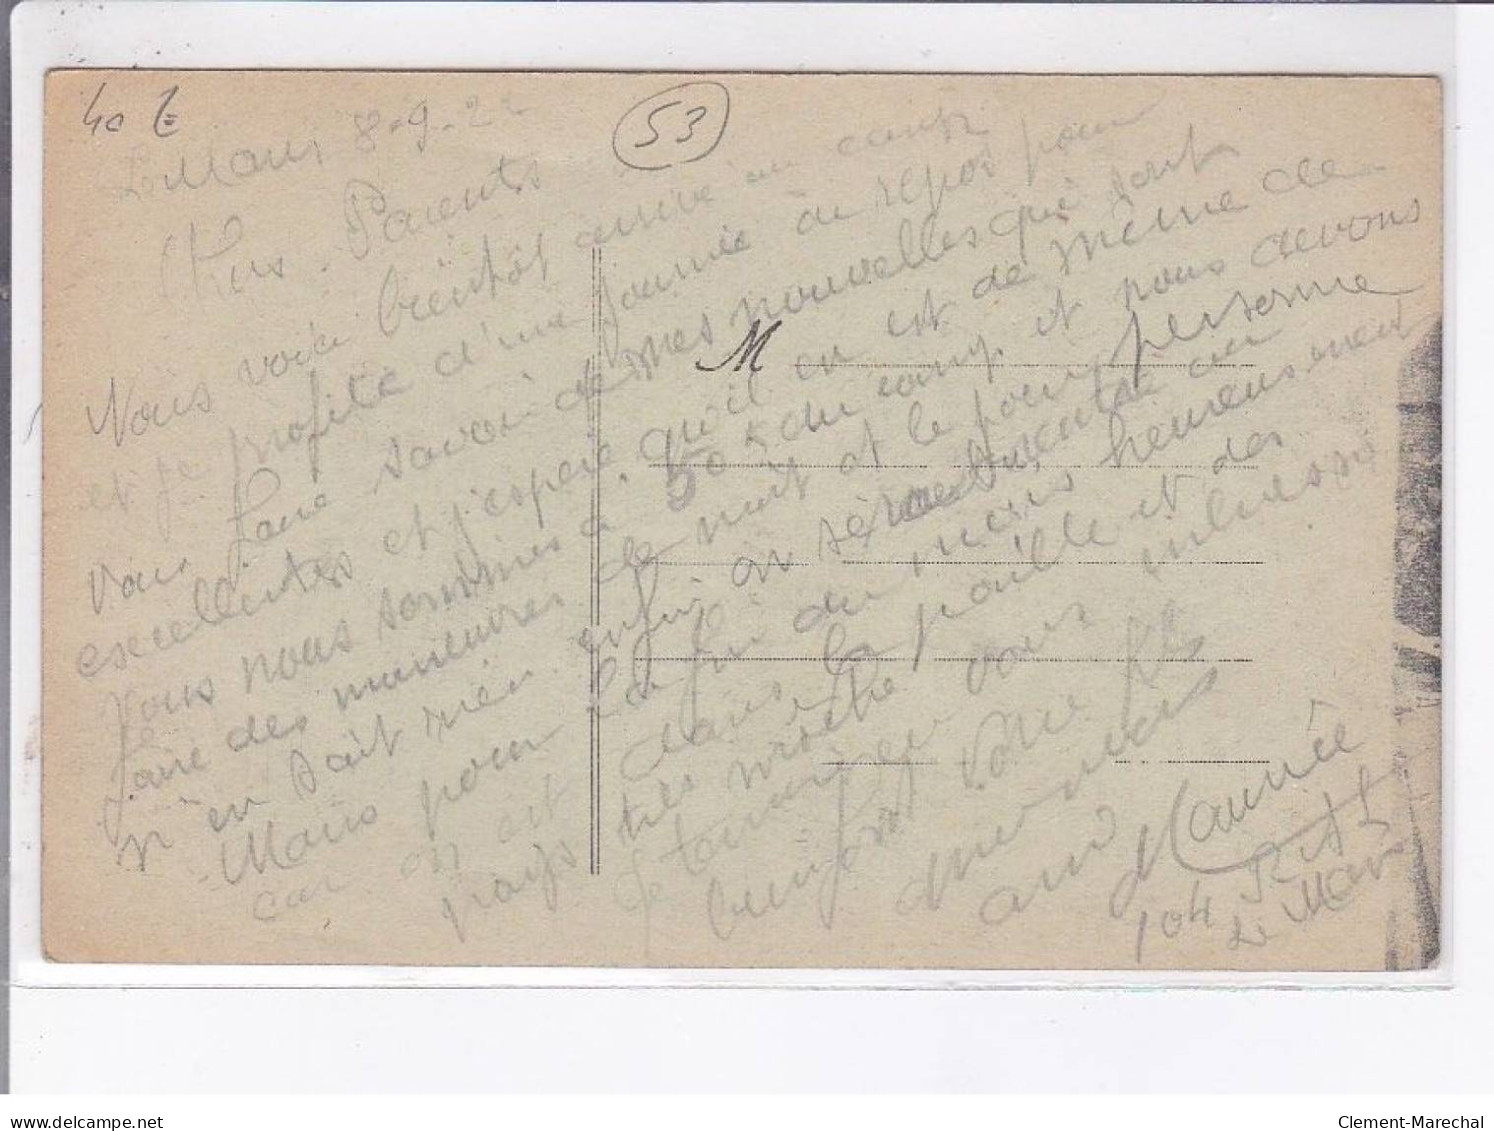 40 E
53
Le Mans 8-9-22
Chers Parents
Nous voici bientôt arrivé au camp
et je profite d'une journée de repos pour
vous faire savoir de mes nouvelles qui sont
excellentes et j'espère qu'il en est de même de
vous nous sommes à 50 k du camp et nous devons
faire des manœuvres de nuit et le jour personne
n'en sait rien enfin on sera rentré au
Mans pour la fin du mois heureusement
car on est dans la paille et des
pays très moche
je termine vous
votre fils
et ami
Maurice
104 R
Le Mans
M
delcampe.net
Clement-Marechal